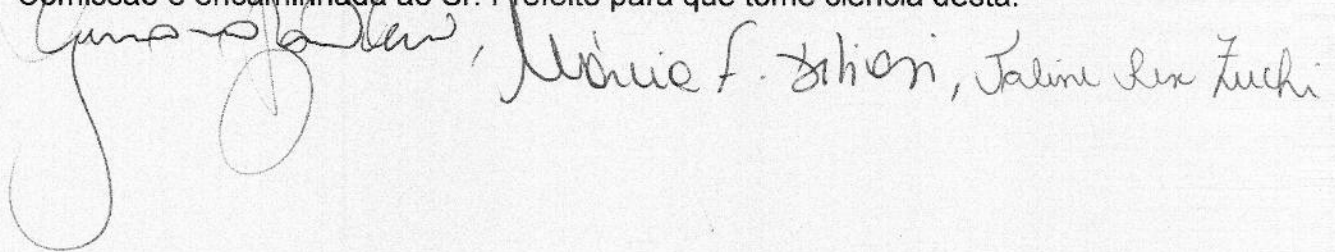 Comissão e ensaminhada ao Sr. Prefeito para que tome ciência desta.
, Márcia F. , Taline Rex Zuchi